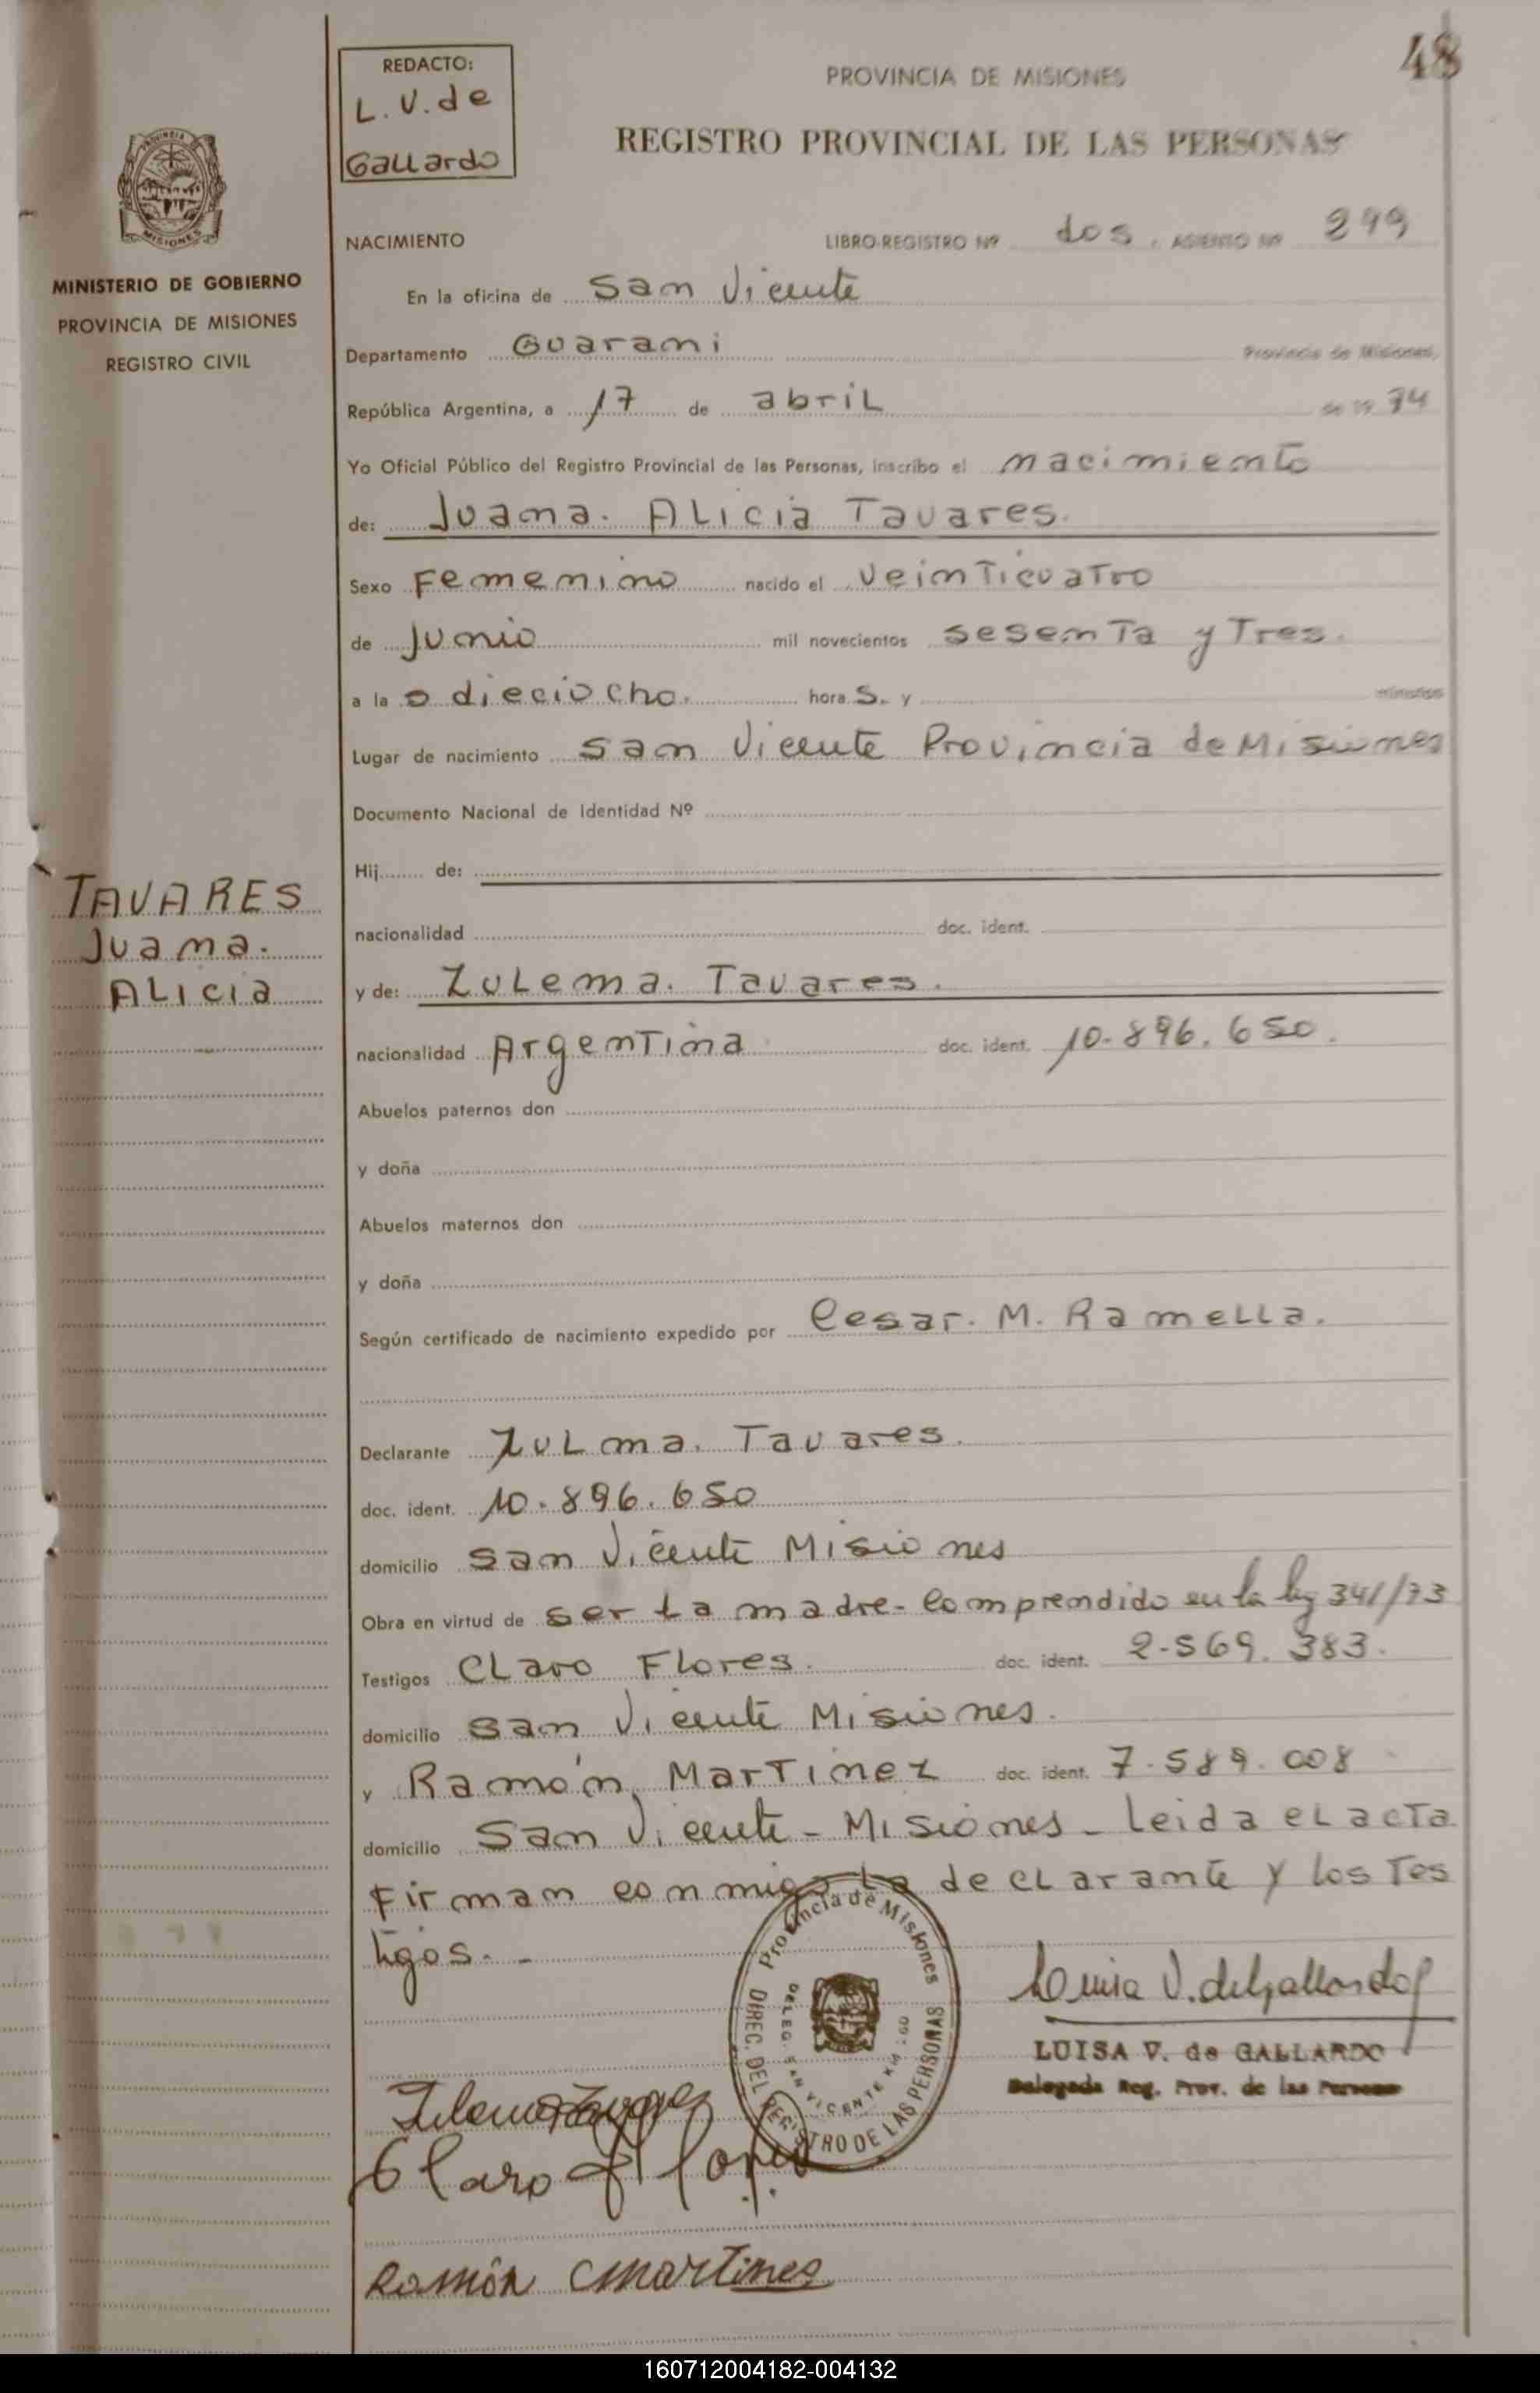 48
REDACTO:
L. V. de
Gallardo
PROVINCIA DE MISIONES
REGISTRO PROVINCIAL DE LAS PERSONAS
PROVINCIA
MISIONES
MINISTERIO DE GOBIERNO
PROVINCIA DE MISIONES
REGISTRO CIVIL
NACIMIENTO LIBRO-REGISTRO Nº dos. ASIENTO Nº 299
En la oficina de San Vicente
Departamento Guarani Provincia de Misiones,
República Argentina, a 17 de abril de 19 74
Yo Oficial Público del Registro Provincial de las Personas, inscribo el nacimiento
de: Juana. Alicia Tavares.
Sexo Femenino nacido el veinticuatro
de junio mil novecientos sesenta y Tres.
a la s dieciocho. hora s. y minutos
Lugar de nacimiento San Vicente Provincia de Misiones
Documento Nacional de Identidad Nº
Hij de:
TAVARES
Juana.
Alicia
nacionalidad doc. ident.
y de: Zulema. Tavares.
nacionalidad Argentina doc. ident. 10.896.650.
Abuelos paternos don
y doña
Abuelos maternos don
y doña
Según certificado de nacimiento expedido por Cesar. M. Ramella.
Declarante Zulma. Tavares.
doc. ident. 10.896.650
domicilio San Vicente Misiones
Obra en virtud de ser la madre- comprendido en la ley 341//73
Testigos Claro Flores. doc. ident. 2.569.383.
domicilio San Vicente Misiones.
y Ramón Martinez doc. ident. 7.589.008
domicilio San Vicente - Misiones - Leida el acta
Firman conmigo la declarante y los Tes
tigos. -
Provincia de Misiones
DIREC. DEL REGISTRO DE LAS PERSONAS
DELEG. SAN VICENTE
Luisa V. de Gallardo
LUISA V. de GALLARDO
Delegada Reg. Prov. de las Personas
Zulema Tavares
Claro Flores
Ramón Martines
160712004182-004132